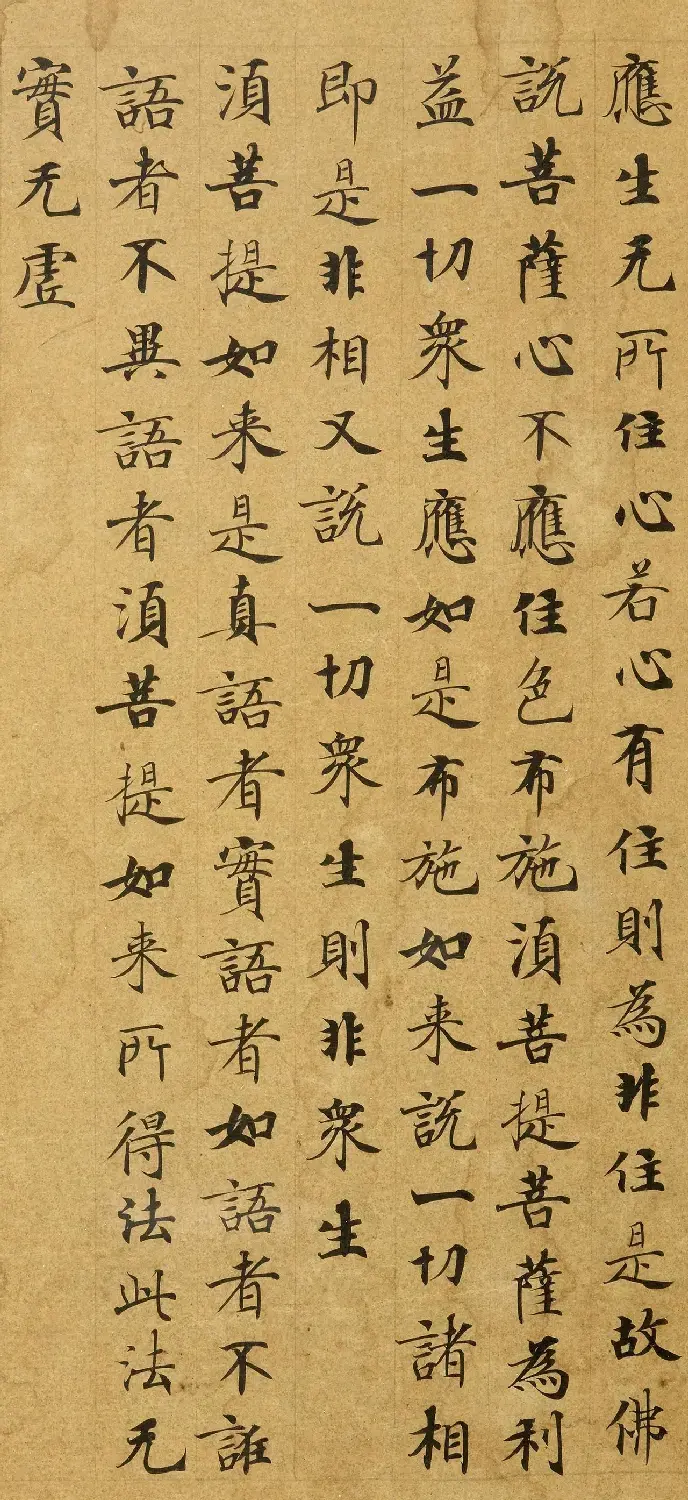 應生无所住心若心有住則為非住是故佛
説菩薩心不應住色布施湏菩提菩薩為利
益一切衆生應如是布施如来説一切諸相
即是非相又説一切衆生則非衆生
湏菩提如来是真語者實語者如語者不誑
語者不異語者湏菩提如来所得法此法无
實无虚